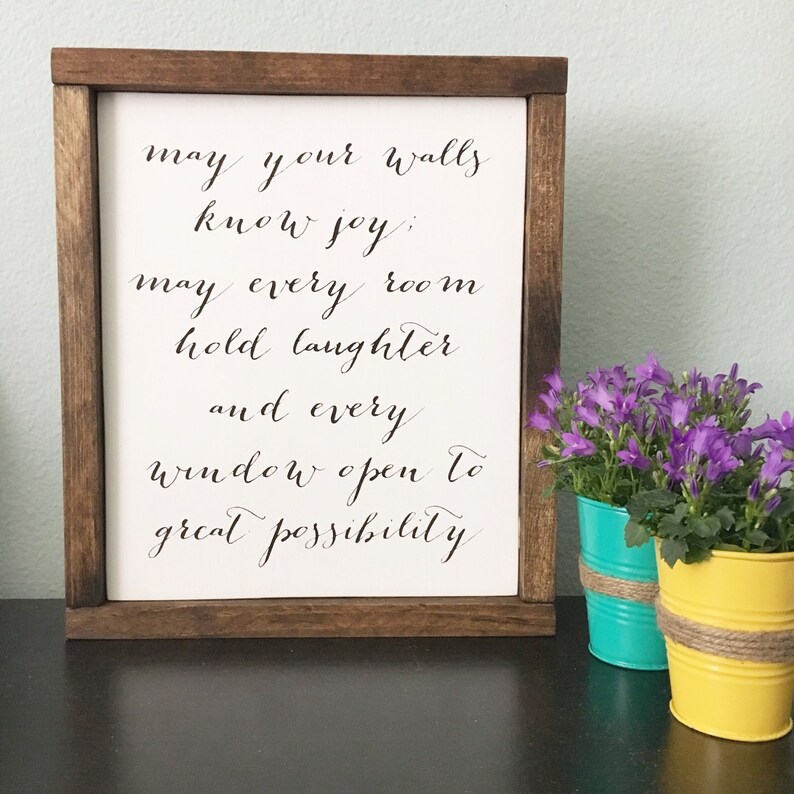 may your walls
know joy;
may every room
hold laughter
and every
window open to
great possibility